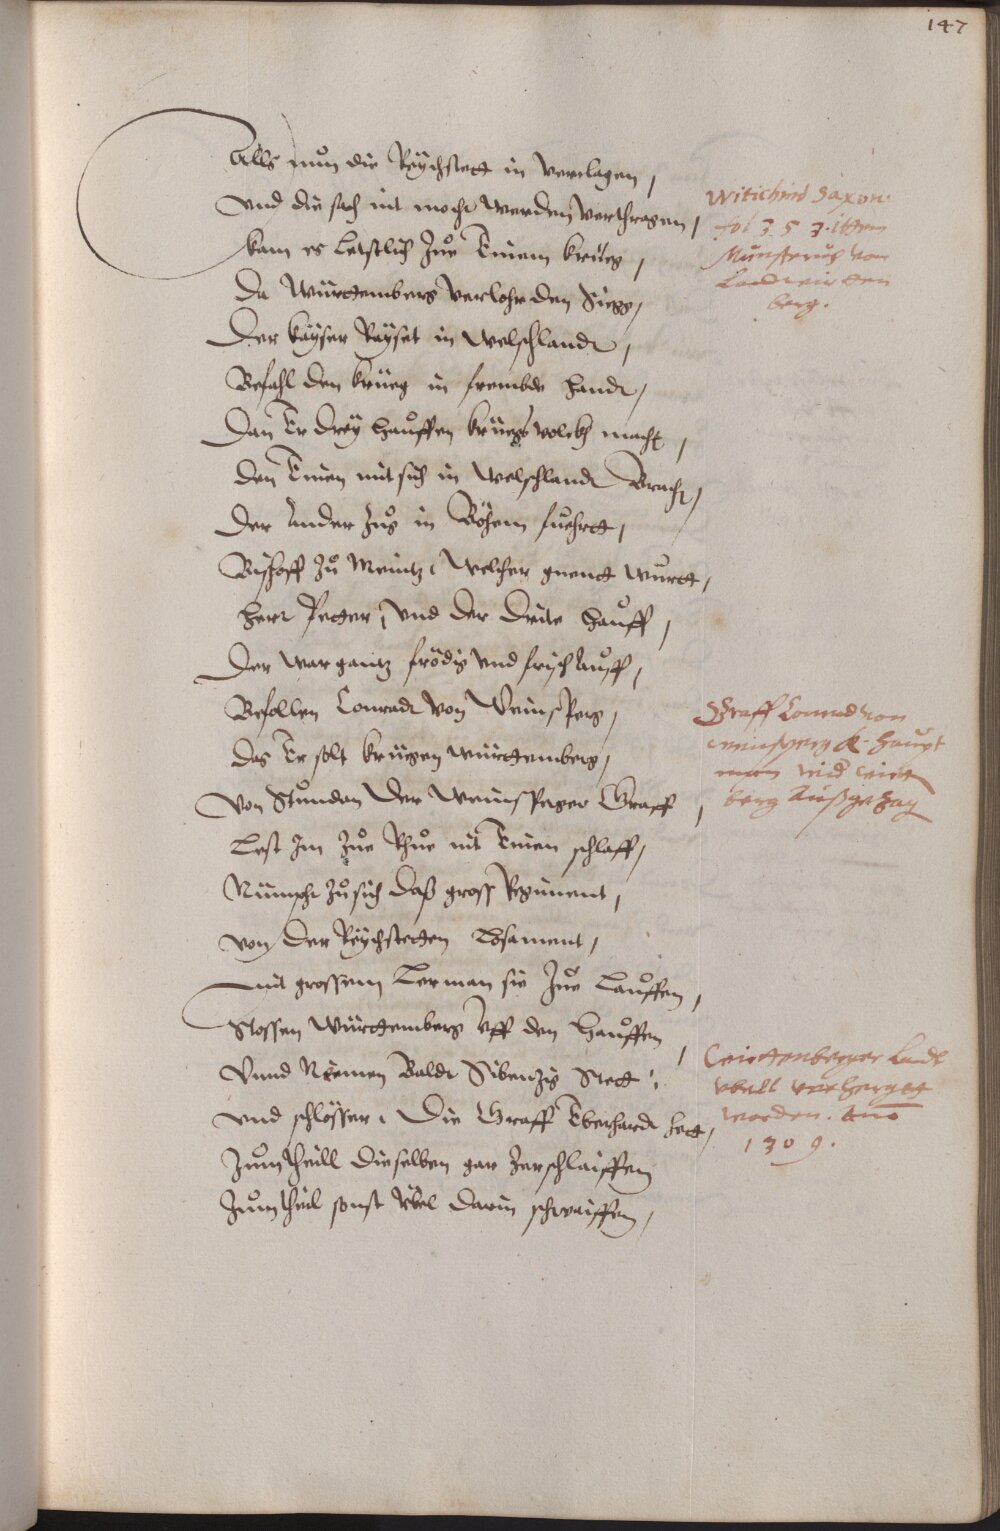 147
Alls nun die Reÿchstett in verclagen,
Vnd die sach nit mocht werden verthragen,
kam es Letstlich Zuͦe Einem krüeg,
Da Württemberg verlohr den Siegg,
Der Kaÿser Raÿset in welschlandt,
Befahl den krüeg in frembde handt,
Dan Er dreÿ hauffen kruegsvolckh macht,
Den Einen mit sich in welschlandt Bracht,
Der Ander Zug in Böhem fuehrtt,
Bischoff Zuͦ Meintz, welcher gnent wurtt,
Herr Petter, vnd der dritte hauff,
Der war gantz frödig vnd frisch auff,
Befollen Conradt von Weinsperg,
Das Er solt kriegen württemberg,
Von Stunden der Weinsperger Graff
Lest Im Zuͦe Rhuͦe nit Einen schlaff,
Nümpht Zuͦ sich daß gross Regiment,
von der Reÿchstetten
mit grossem Lerman sie Zuͦe Lauffen,
Stossen Württemberg vff den hauffen
Vnnd Nemen Baldt Sibenzig Stett,
vnd schlösser, die Graff Eberhardt hett,
Zum theill dieselben gar zerschlaiffen
Zum theil sonst vbel darin schwaiffen,
Witichind Saxon.
fol 353. ittem
Munsterus von
Landt wirtten
berg.
Graff Conrad von
weinsperg K. haupt
man wid wirt
berg außgezog
Wirttenberger Landt
vbell verhergett
worden. Anno
1309.